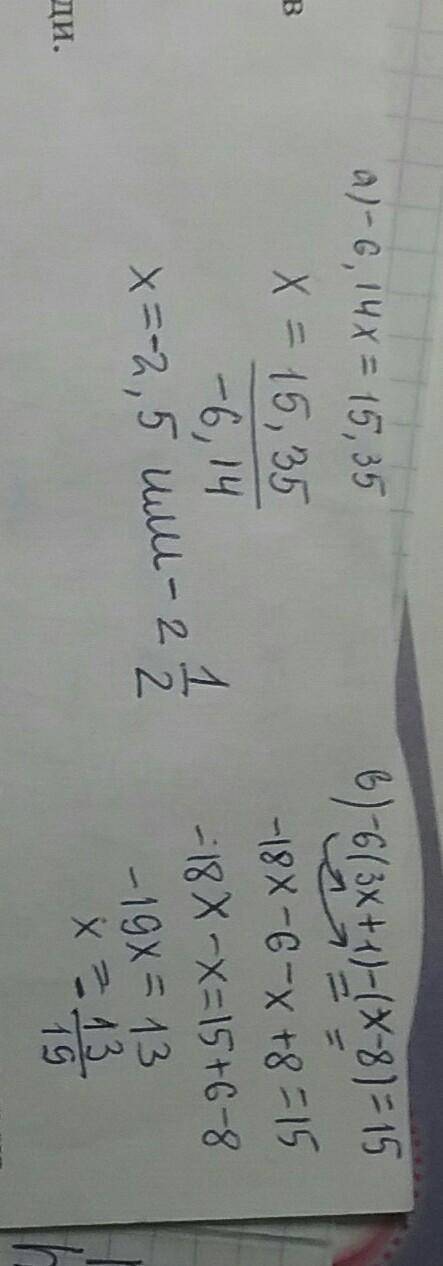 ди.
в
а) -6,14x = 15,35
x = 15,35 / -6,14
x = -2,5 или -2 1/2
в) -6(3x+1)-(x-8)=15
-18x-6-x+8=15
-18x-x=15+6-8
-19x=13
x=-13/19